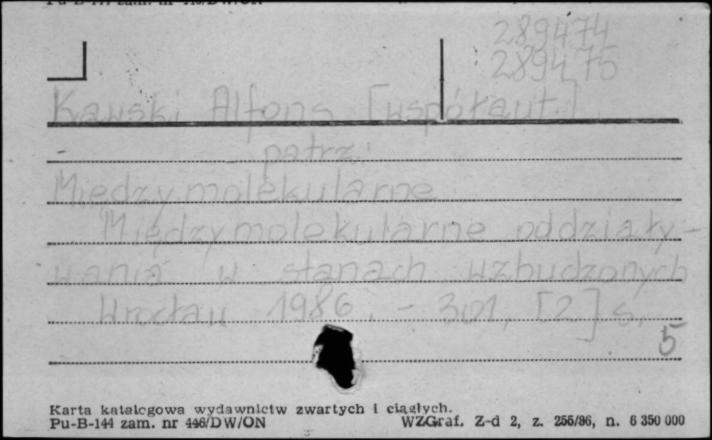 289474
289475
Kawski Alfons [współaut.]
patrz:
Międzymolekularne
Międzymolekularne oddziały-
wania w stanach wzbudzonych
Wrocław 1986. - 301, [2] s.
5
Karta katalogowa wydawnictw zwartych i ciągłych.
Pu-B-144 zam. nr 446/DW/ON WZGraf. Z-d 2, z. 255/86, n. 6 350 000